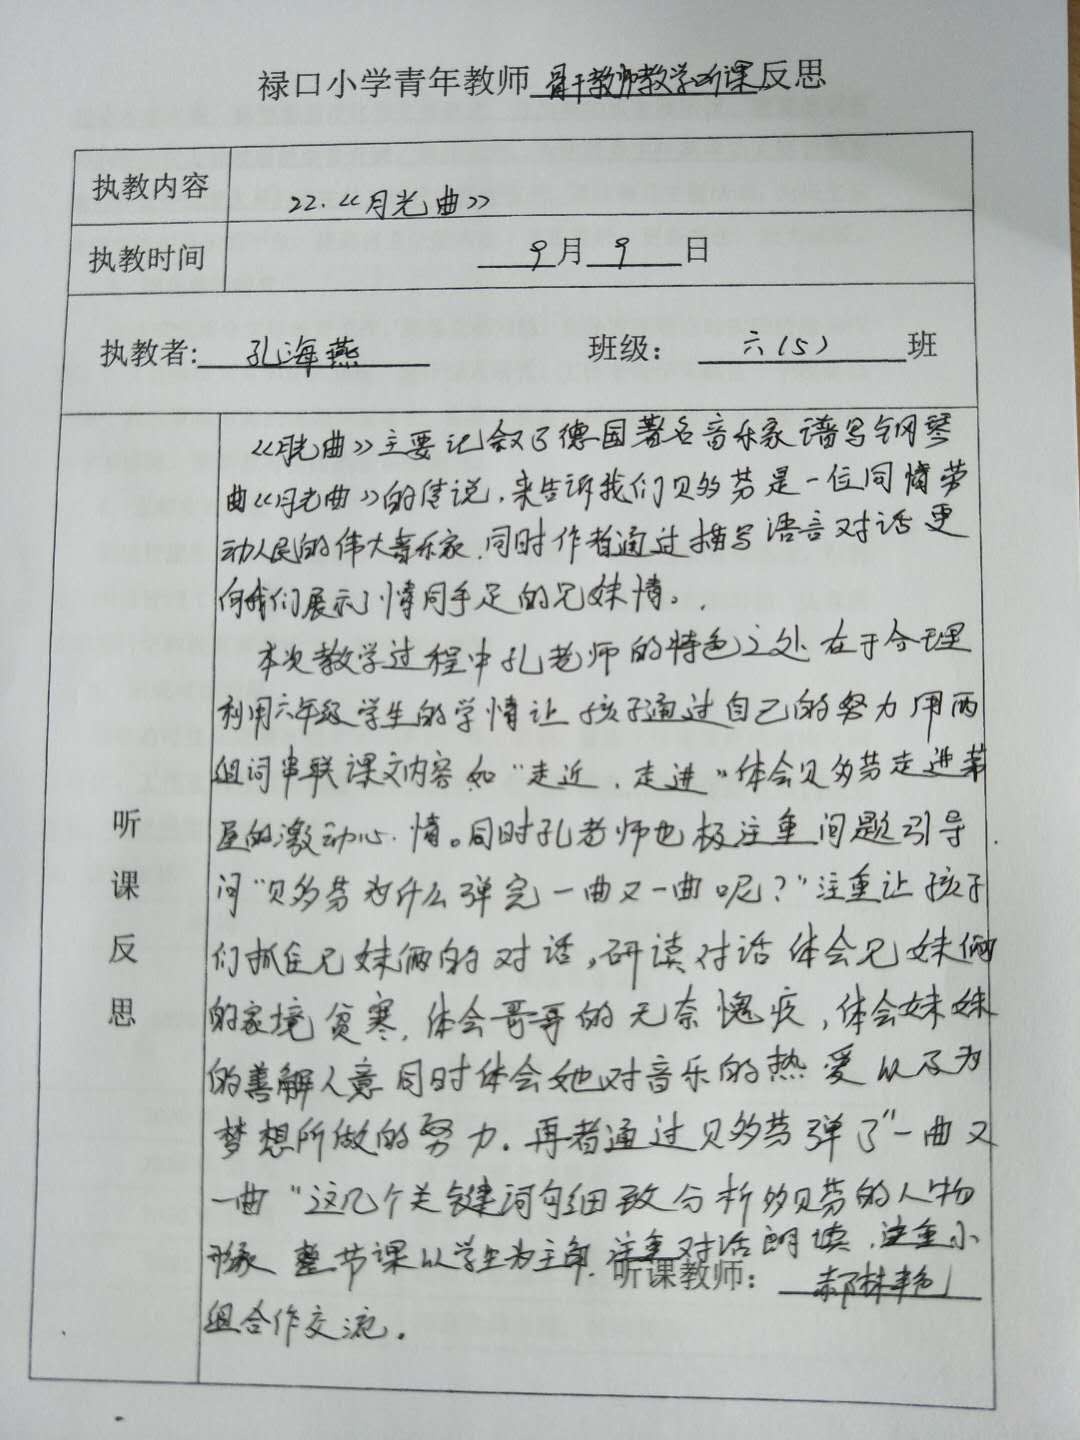 禄口小学青年教师 骨干教师教学听课反思
执教内容 22.《月光曲》
执教时间 9月9日
执教者: 孔海燕 班级: 六(5) 班
听课反思
《月光曲》主要记叙了德国著名音乐家谱写钢琴
曲《月光曲》的传说,来告诉我们贝多芬是一位同情劳
动人民的伟大音乐家.同时作者通过描写语言对话更
向我们展示了情同手足的兄妹情。
本次教学过程中孔老师的特色之处在于合理
利用六年级学生的学情让孩子通过自己的努力用两
组词串联课文内容如“走近,走进”体会贝多芬走进茅
屋的激动心情。同时孔老师也极注重问题引导.
问“贝多芬为什么弹完一曲又一曲呢?”注重让孩子
们抓住兄妹俩的对话,研读对话体会兄妹俩
的家境贫寒,体会哥哥的无奈愧疚,体会妹妹
的善解人意同时体会她对音乐的热爱以及为
梦想所做的努力.再者通过贝多芬弹了“一曲又
一曲”这几个关键词句细致分析多贝芬的人物
形象 整节课以学生为主角.注重对话朗读.注重小
组合作交流.
听课教师: 郝林艳